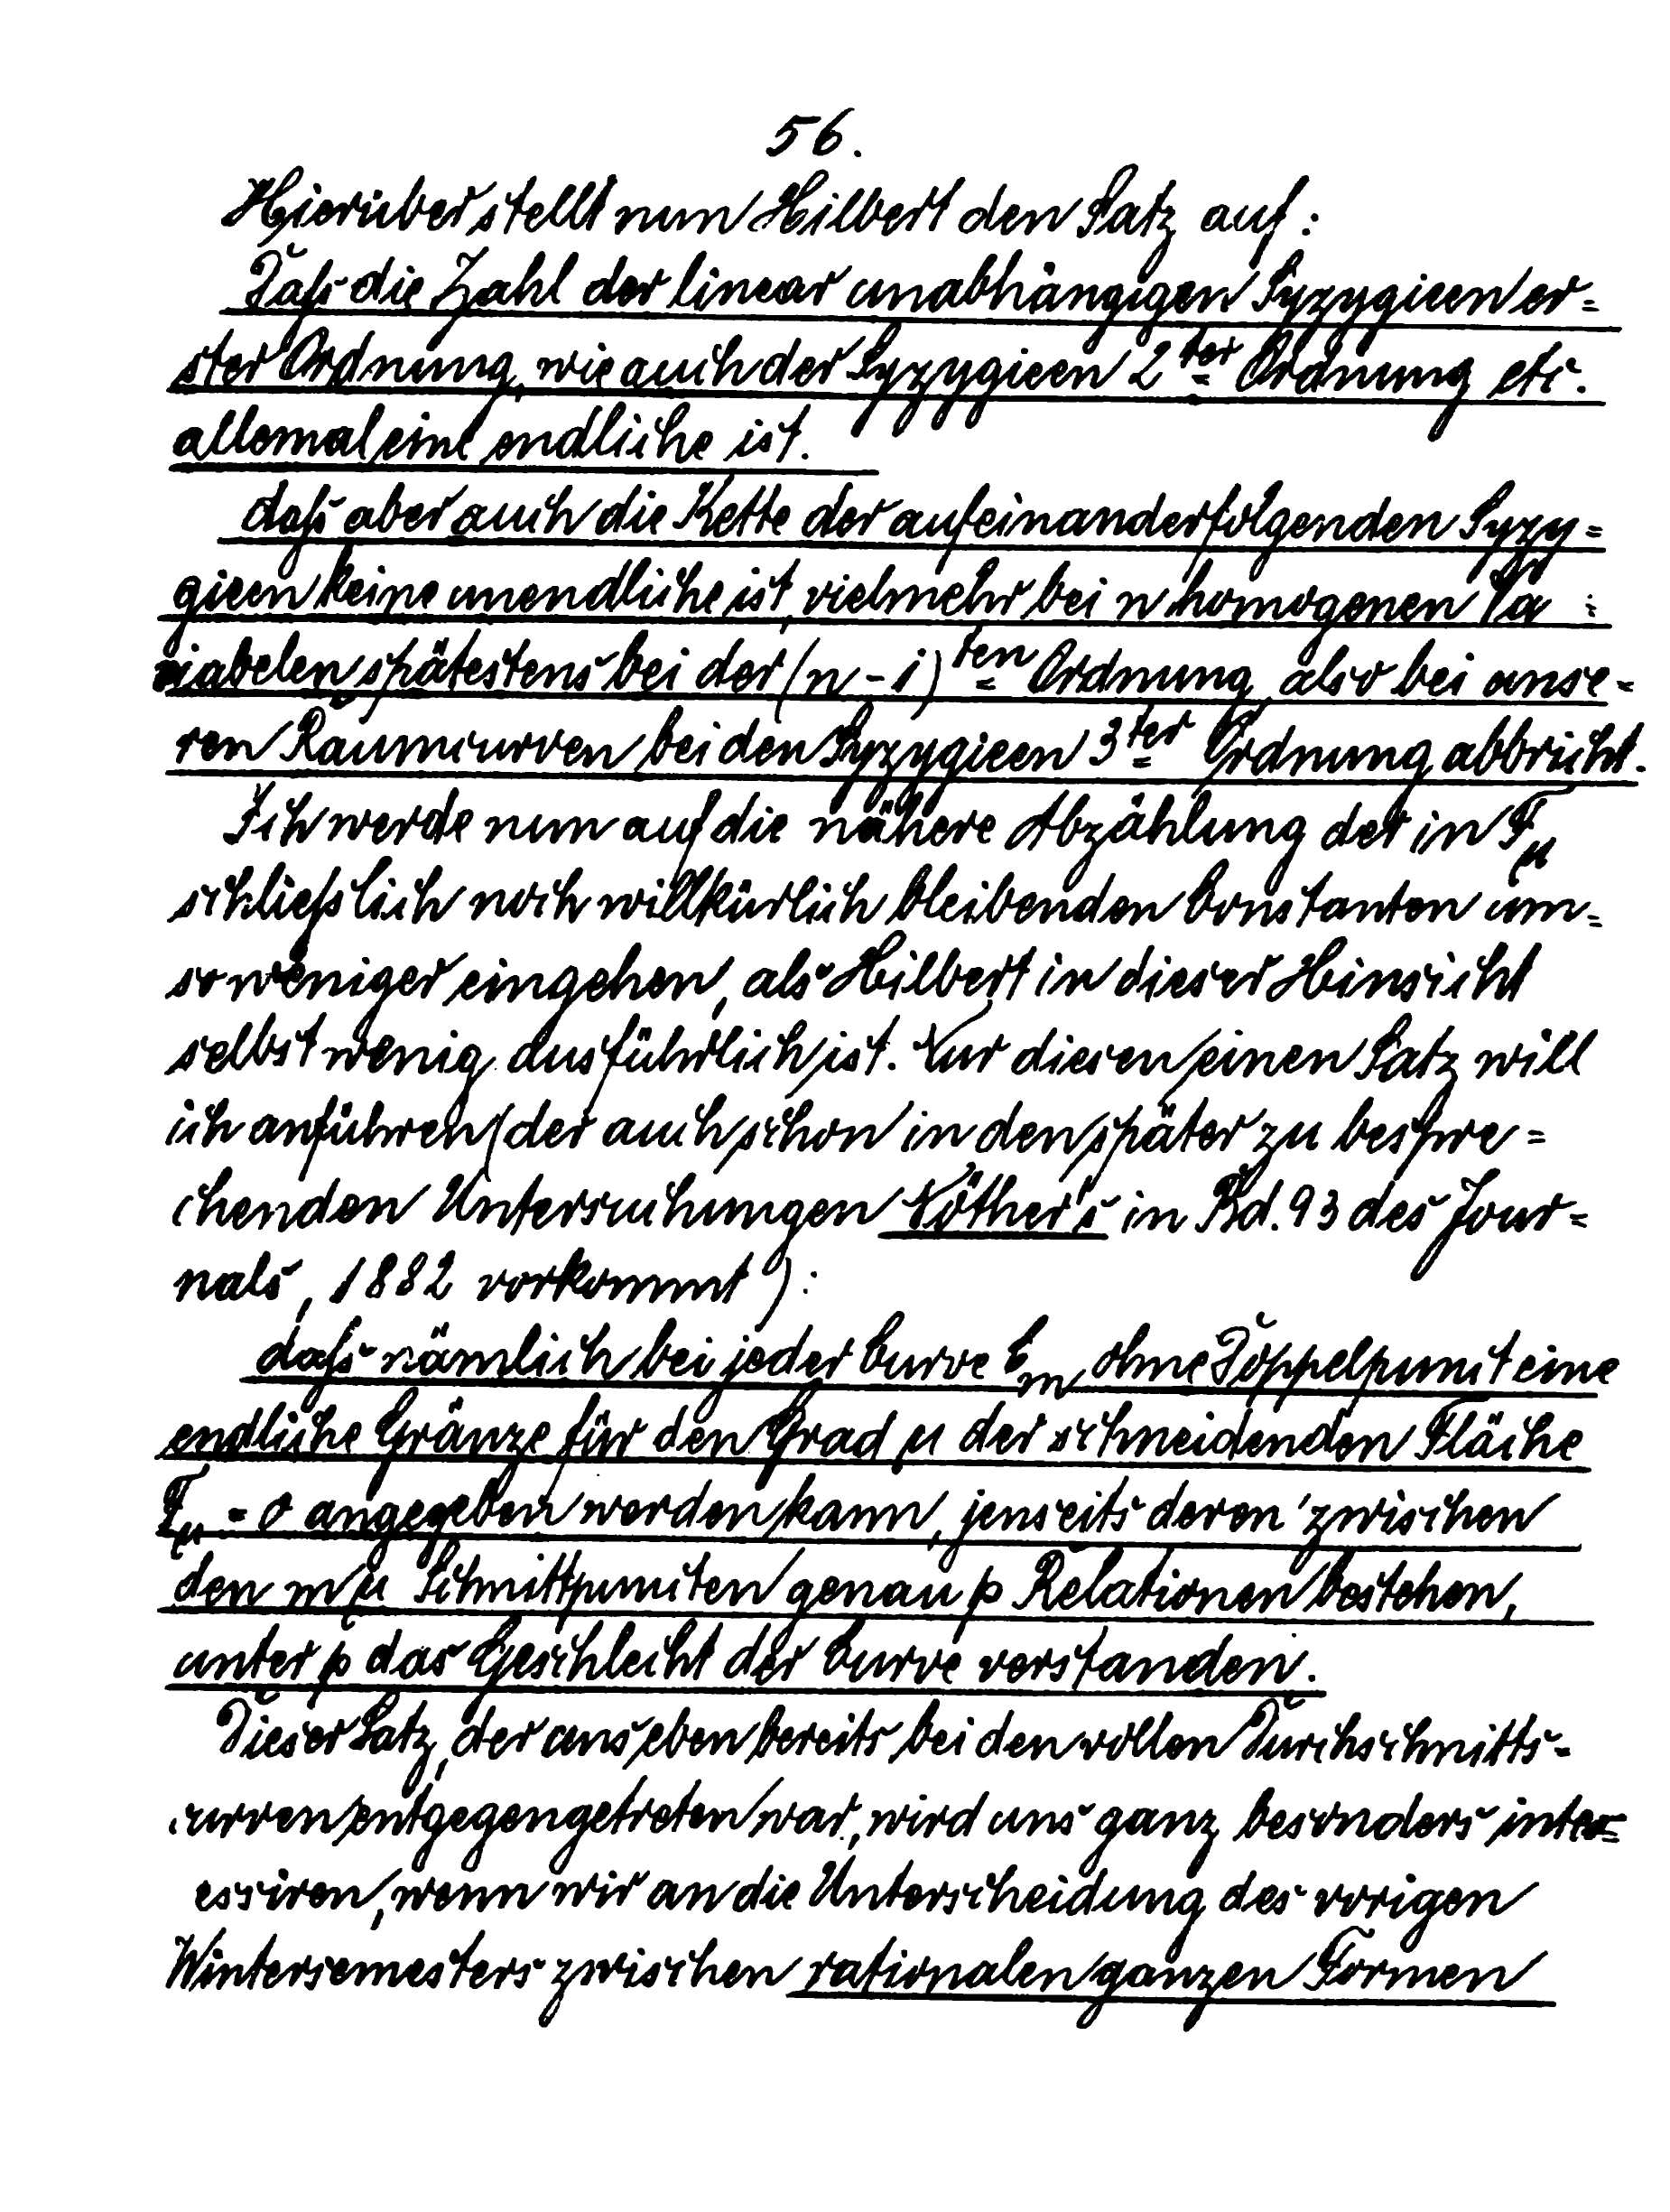 56.
Hierüber stellt nun Hilbert den Satz auf:
Daſs die Zahl der linear unabhängigen Syzygieen er-
ster Ordnung, wie auch der Syzygieen 2ter Ordnung etc.
allemal eine endliche ist.
daſs aber auch die Kette der aufeinanderfolgenden Syzy-
gieen keine unendliche ist, vielmehr bei n homogenen Va-
riabelen spätestens bei der (n-1)ten Ordnung, also bei unse-
ren Raumcurven bei den Syzygieen 3ter Ordnung abbricht.
Ich werde nun auf die nähere Abzählung der in Fμ
schlieſslich noch willkürlich bleibenden Constanten um-
so weniger eingehen, als Hilbert in dieser Hinsicht
selbst wenig ausführlich ist. Nur diesen einen Satz will
ich anführen (der auch schon in den später zu bespre-
chenden Untersuchungen Nöther's in Bd. 93 des Jour-
nals, 1882 vorkommt):
daſs nämlich bei jeder Curve Cm ohne Doppelpunct eine
endliche Gränze für den Grad μ der schneidenden Fläche
Fμ = 0 angegeben werden kann, jenseits deren zwischen
den mμ Schnittpuncten genau p Relationen bestehen,
unter p das Geschlecht der Curve verstanden.
Dieser Satz, der uns eben bereits bei den vollen Durchschnitts-
curven entgegengetreten war, wird uns ganz besonders inter-
essiren, wenn wir an die Unterscheidung des vorigen
Wintersemesters zwischen rationalen ganzen Formen